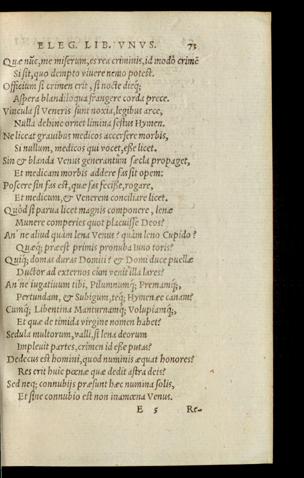 ELEG. LIB. VNVS. 73
Quæ nũc, me miserum, es rea criminis, id modò crimẽ
Si sit, quo dempto viuere nemo potest.
Officium si crimen erit, si nocte dieq;
Aspera blandiloqua frangere corda prece.
Vincula si Veneris sunt noxia, legibus arce,
Nulla dehinc ornet limina sertus Hymen.
Ne liceat grauibus medicos accersere morbis,
Si nullum, medicos qui vocet, esse licet.
Sin & blanda Venus generantum sæcla propaget,
Et medicam morbis addere fas sit opem:
Poscere sin fas est, quæ fas fecisse, rogare,
Et medicum, & Venerem conciliare licet.
Quòd si parua licet magnis componere, lenæ
Munere comperies quot placuisse Deos?
An' ne aliud quàm lena Venus? quàm leno Cupido?
Quæq; præest primis pronuba Iuno toris?
Qutq; domas duras Domiti? & Domiduce puellæ
Ductor ad externos cùm venit illa lares?
An' ne iugatiuum tibi, Pilumnumq; Premamq;,
Pertundam, & Subigum, teq; Hymenæe canam?
Cumq; Libentina Manturnamq; Volupiamq;,
Et quæ de timida virgine nomen habet?
Sedula multorum, valli, si lena deorum
Impleuit partes, crimen id esse putas?
Dedecus est homini, quod numinis æquat honores?
Res erit huic pœnæ quæ dedit astra deis?
Sed neq; connubijs præsunt hæc numina solis,
Et sine connubio est non inamœna Venus.
E 5 Re-